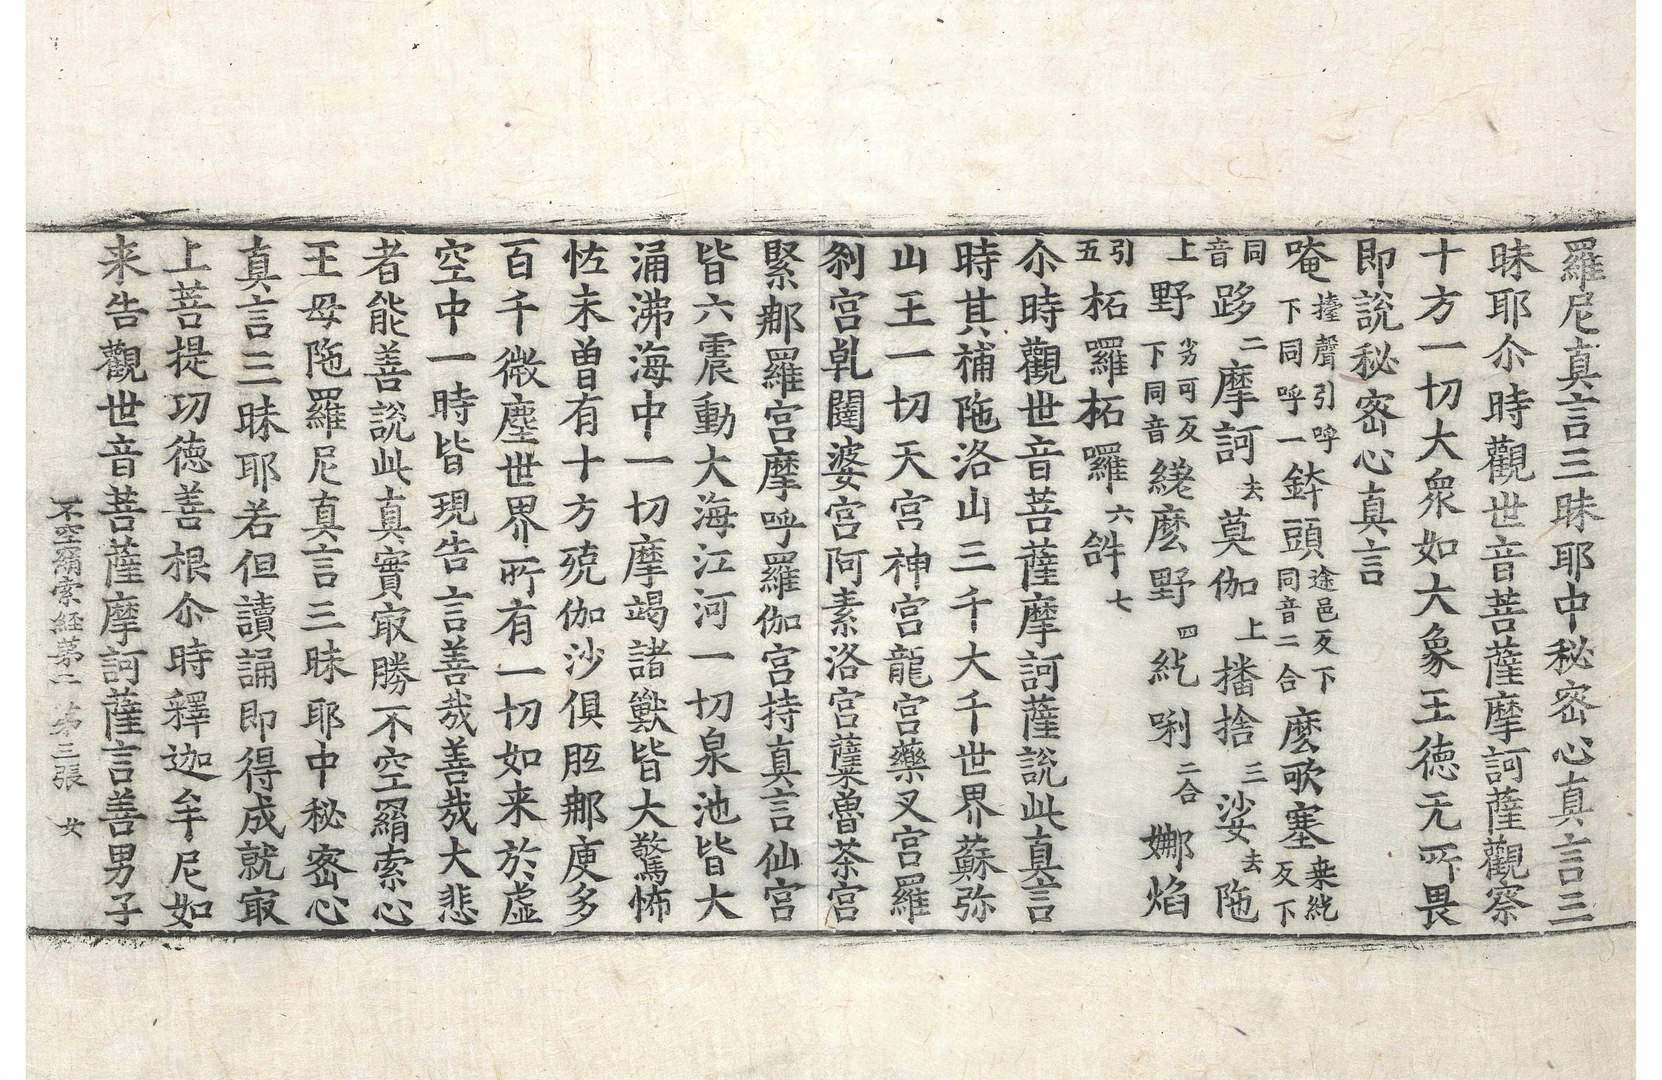 羅尼真言三昧耶中秘密心真言三
昧耶尒時觀世音菩薩摩訶薩觀察
十方一切大衆如大象王德无所畏
即說秘密心真言
唵擡聲引呼下同呼一鉢頭途邑反下同音二合麽歌塞桒紇反下
同音跢二摩訶去莫伽上播捨三娑去陁
上野劣可反下同音縒麽野四紇唎二合娜焰
引五柘囉柘囉六𤙖七
尒時觀世音菩薩摩訶薩說此真言
時其補陁洛山三千大千世界蘇弥
山王一切天宮神宮龍宮藥叉宮羅
剎宮乹闥婆宮阿素洛宮蘖魯荼宮
緊那羅宮摩呼羅伽宮持真言仙宮
皆六震動大海江河一切泉池皆大
涌沸海中一切摩竭諸獸皆大驚怖
恠未曾有十方殑伽沙俱胝那庾多
百千微塵世界所有一切如来於虛
空中一時皆現告言善哉善哉大悲
者能善說此真實㝡勝不空羂索心
王母陁羅尼真言三昧耶中秘密心
真言三昧耶若但讀誦即得成就㝡
上菩提功德善根尒時釋迦牟尼如
来告觀世音菩薩摩訶薩言善男子
不空羂索経第二 第三張 女